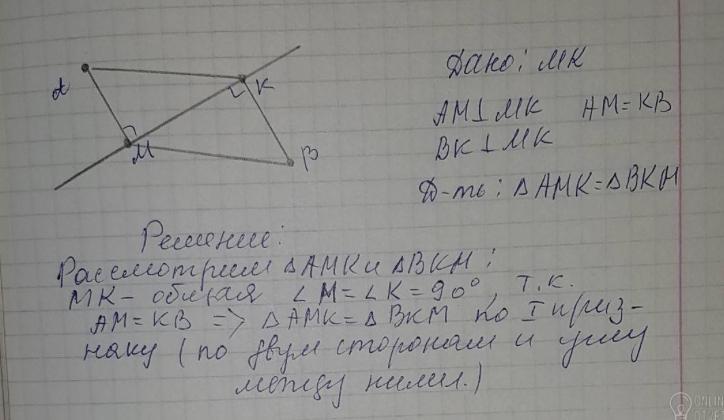 A
K
M
B
Дано: MK
AM⊥MK AM=KB
BK⊥MK
Д-ть: ΔAMK=ΔBKM
Решение:
Рассмотрим ΔAMK и ΔBKM:
MK- общая ∠M=∠K=90°, т.к.
AM=KB => ΔAMK=ΔBKM по I приз-
наку (по двум сторонам и углу
между ними.)
ONLIN